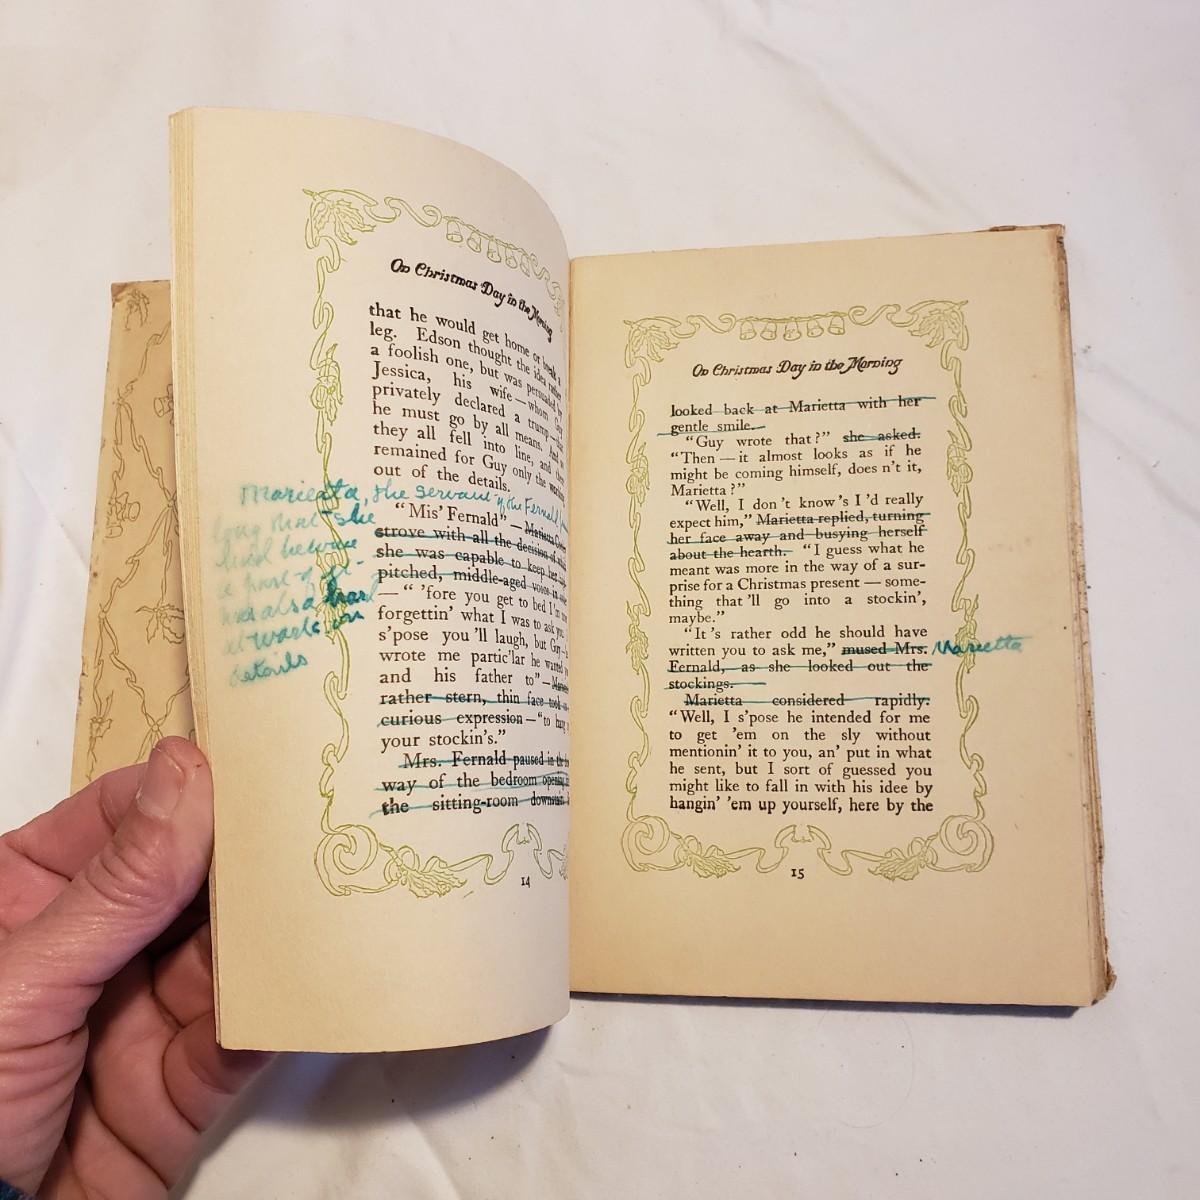 On Christmas Day in the Morning
that he would get home or break a
leg. Edson thought the idea rather
a foolish one, but was persuaded by
Jessica, his wife—whom Guy
privately declared a trump—that
he must go by all means. And so
they all fell into line, and there
remained for Guy only the working
out of the details.
Marietta, the servant of the Fernald
long that she
lived became
a part of
was also hard
at work on
details
"Mis' Fernald"—Marietta
strove with all the decision of which
she was capable to keep her
pitched, middle-aged voice in
—"'fore you get to bed I'm
forgettin' what I was to ask you.
s'pose you'll laugh, but Guy
wrote me partic'lar he wanted you
and his father to"—
rather stern, thin face took on a
curious expression—"to hang up
your stockin's."
Mrs. Fernald paused in the
way of the bedroom opening
the sitting-room downstairs
14
On Christmas Day in the Morning
looked back at Marietta with her
gentle smile.
"Guy wrote that?" she asked.
"Then—it almost looks as if he
might be coming himself, does n't it,
Marietta?"
"Well, I don't know's I'd really
expect him," Marietta replied, turning
her face away and busying herself
about the hearth. "I guess what he
meant was more in the way of a sur-
prise for a Christmas present—some-
thing that'll go into a stockin',
maybe."
"It's rather odd he should have
written you to ask me," mused Mrs. Marietta
Fernald, as she looked out the
stockings.
Marietta considered rapidly.
"Well, I s'pose he intended for me
to get 'em on the sly without
mentionin' it to you, an' put in what
he sent, but I sort of guessed you
might like to fall in with his idee by
hangin' 'em up yourself, here by the
15